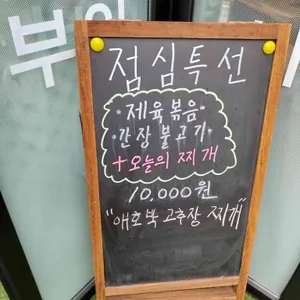 부엌
점심특선
·제육볶음·
·간장불고기·
+오늘의 찌개
10,000원
"애호박 고추장 찌개"